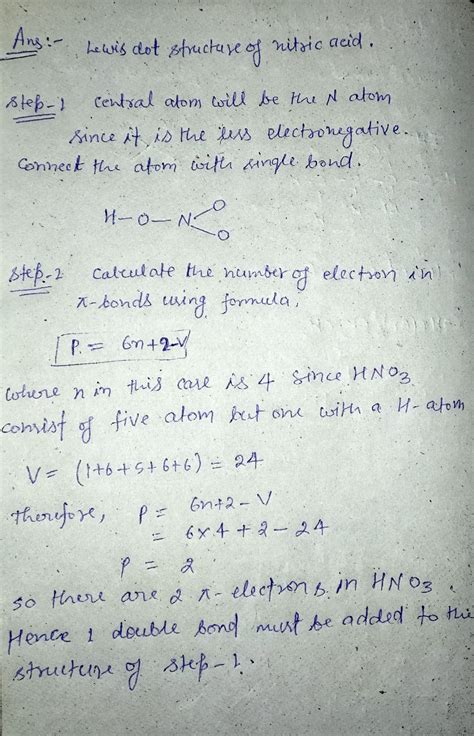 Ans:- Lewis dot structure of nitric acid.
Step-1 Central atom will be the N atom
since it is the less electronegative.
Connect the atom with single bond.
H-O-N
O
O
Step-2 Calculate the number of electron in
π-bonds using formula,
P. = 6n+2-V
Where n in this case is 4 since HNO3
consist of five atom but one with a H-atom
V = (1+6+5+6+6) = 24
Therefore, P = 6n+2-V
= 6x4+2-24
P = 2
So there are 2 π-electrons in HNO3.
Hence 1 double bond must be added to the
structure of step-1.